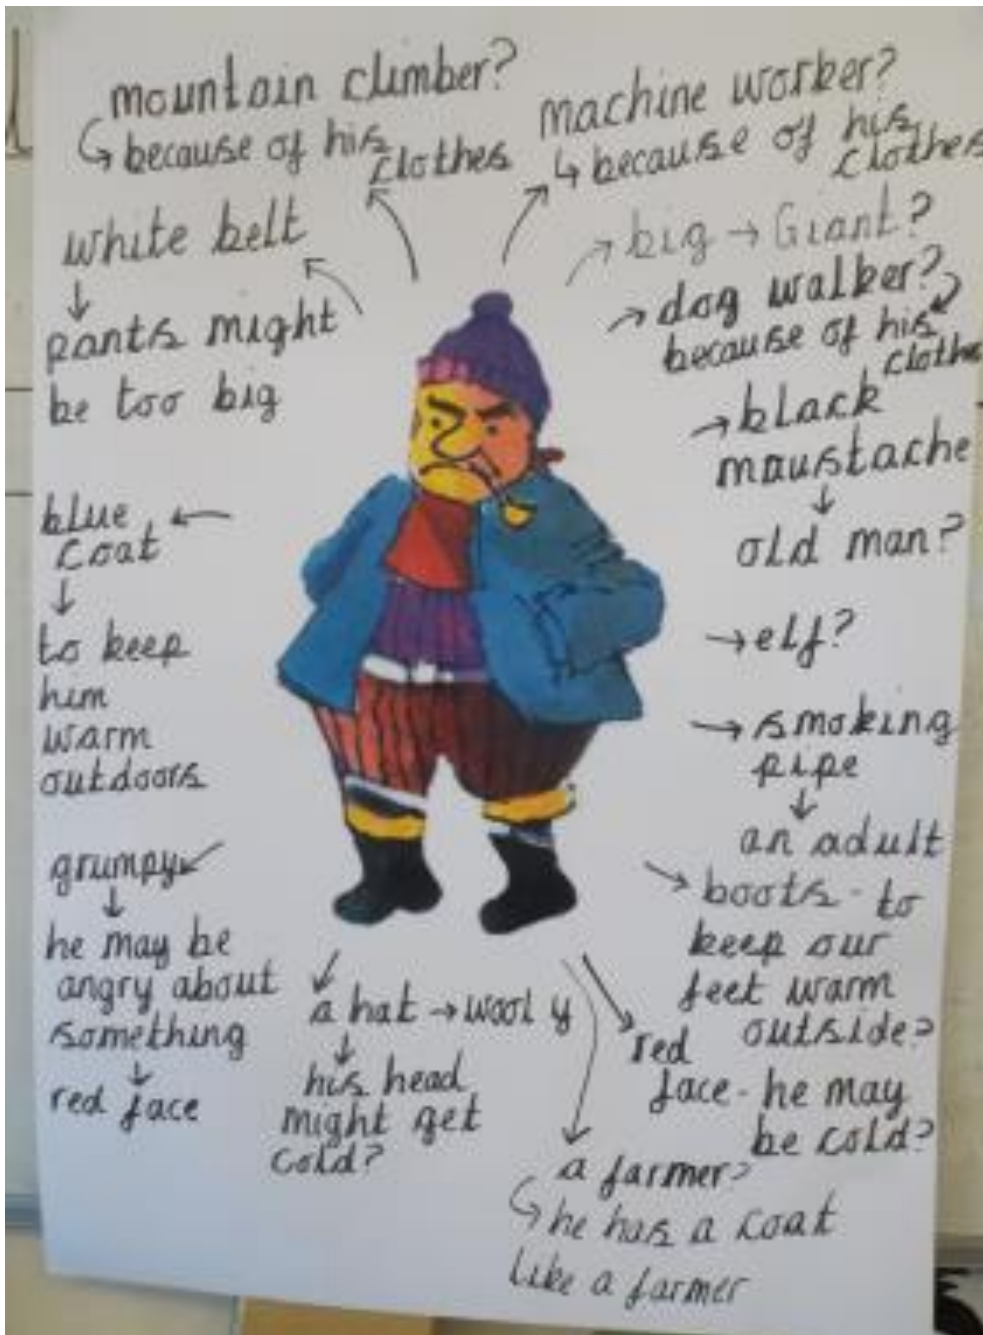 mountain climber?
because of his
clothes
machine worker?
because of his
clothes
white belt
pants might
be too big
big → Giant?
dog walker?
because of his
clothe
black
maustache
old man?
blue
coat
to keep
him
warm
outdoors
elf?
smoking
pipe
an adult
grumpy
he may be
angry about
something
red face
a hat → wooly
his head
might get
cold?
boots - to
keep our
feet warm
outside?
red
face - he may
be cold?
a farmer?
he has a coat
like a farmer